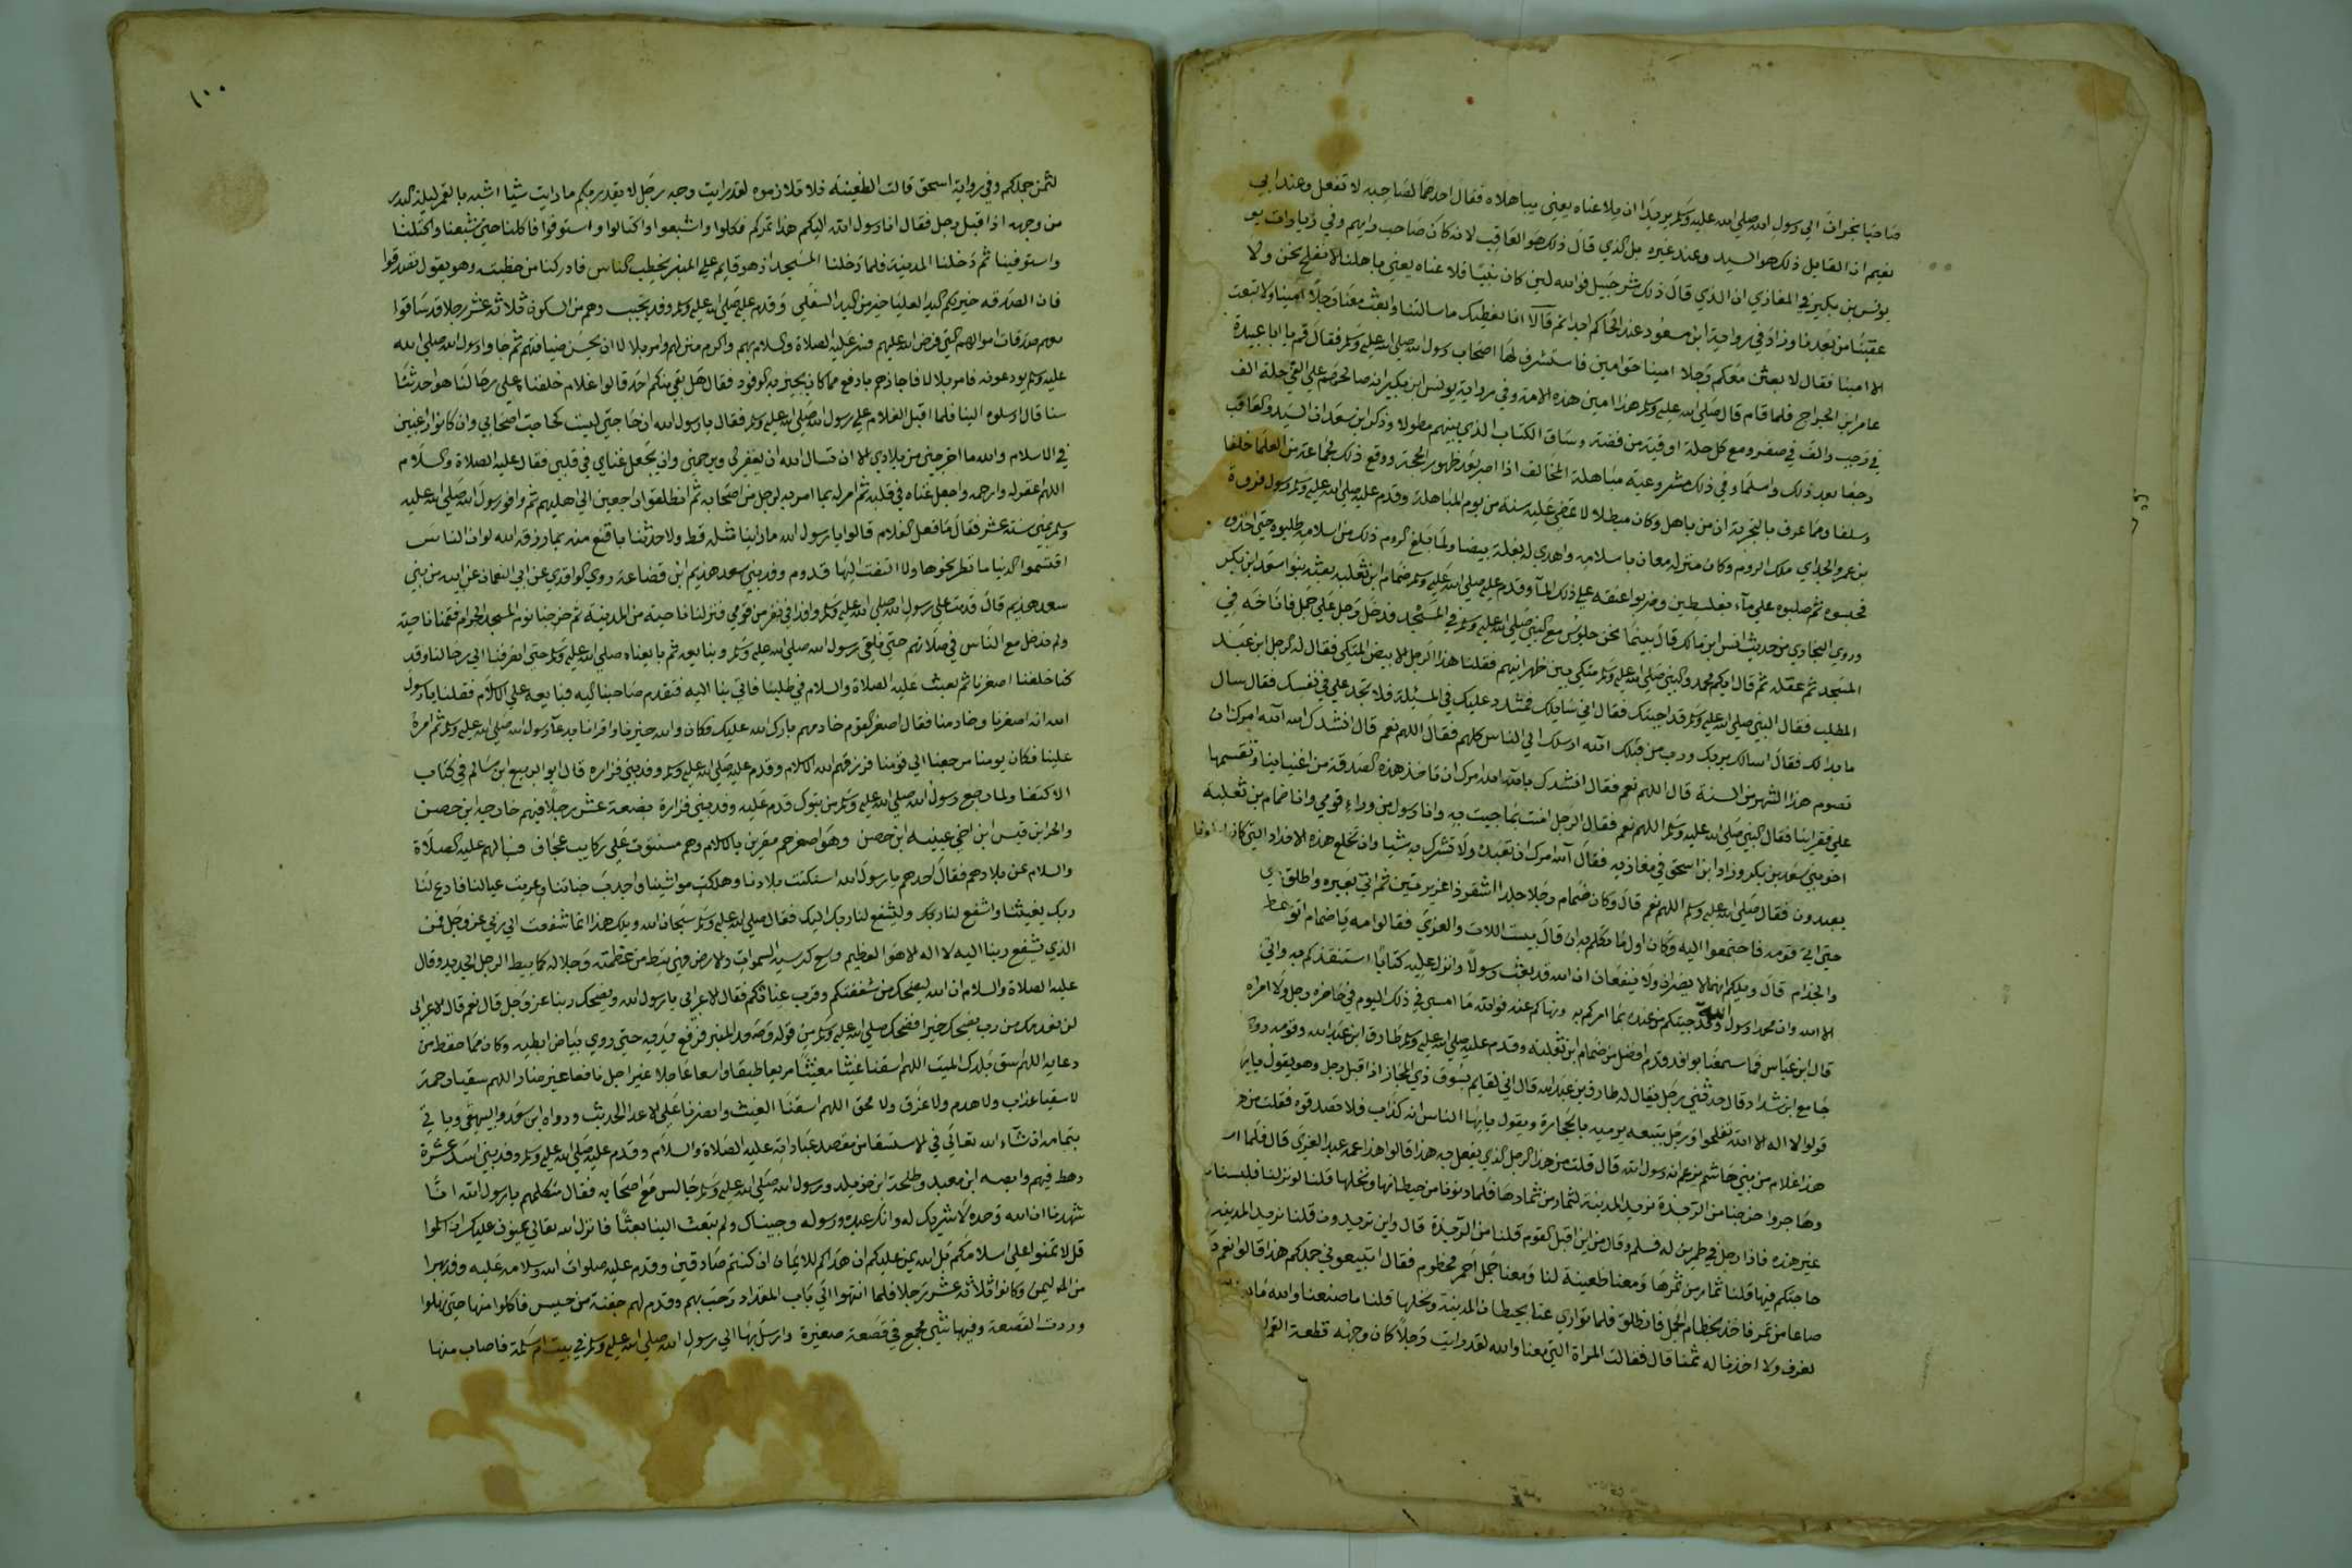 صاحبا نجران الي رسول الله صلي الله عليه وسلم يريدا ان يلاعناه يعني يباهلاه فقال احدهما لصاحبه لا تفعل وعند ابي
نعيم ان القايل ذلك هو السيد وعند غيره بل الذي قال ذلك هو العاقب لانه كان صاحب رايهم وفي زيادات
يونس بن بكير في المغازي ان الذي قال ذلك شرحبيل فوالله لين كان نبيا فلا عناه يعني باهلنا لا نفلح نحن ولا
عقبنا من بعدنا وزاد في رواية ابن مسعود عند الحاكم ابدا ثم قالا انا نعطيك ما سالتنا وابعث معنا رجلا امينا ولا تبعث
الا امينا فقال لابعثن معكم رجلا امينا حق امين فاستشرف لها اصحاب رسول الله صلي الله عليه وسلم فقال قم يا ابا عبيدة
عامر ابن الجراح فلما قام قال صلي الله عليه وسلم هذا امين هذه الامة وفي رواية يونس ابن بكير انه صالحهم علي الفي حلة الف
في رجب والف في صفر ومع كل حلة اوقية من فضة وساق الكتاب الذي بينهم مطولا وذكر ابن سعد ان السيد والعاقب
رجعا بعد ذلك واسلما وفي ذلك مشروعية مباهلة المخالف اذا اصر بعد ظهور الحجة ووقع ذلك لجماعة من العلما خلفا
وسلفا ومما عرف بالتجربة ان من باهل وكان مبطلا لا تمضي عليه سنة من يوم المباهلة وقدم عليه صلي الله عليه وسلم رسول فروة
بن عمرو الجذامي ملك الروم وكان منزله معان باسلامه واهدي له بغلة بيضا ولما بلغ الروم ذلك من اسلامه طلبوه حتي اخذوه
فحبسوه ثم صلبوه علي مآء بفلسطين وضربوا عنقه علي ذلك المآ وقدم عليه صلي الله عليه وسلم ضمام ابن ثعلبه بعثه بنوا سعد ابن بكر
وروي البخاوي من حديث انس ابن مالك قال بينما نحن جلوس مع النبي صلي الله عليه وسلم في المسجد فدخل رجل علي جمل فاناخه في
المسجد ثم عقله ثم قال ايكم محمد والنبي صلي الله عليه وسلم متكي بين ظهرانيهم فقلنا هذا الرجل الابيض المتكي فقال له الرجل ابن عبد
المطلب فقال النبي صلي الله عليه وسلم قد اجبتك فقال اني سايلك فمشدد عليك في المسئلة فلا تجد علي في نفسك فقال سال
ما بدا لك فقال اسالك بربك ورب من قبلك آلله ارسلك الي الناس كلهم فقال اللهم نعم قال انشدك الله آلله امرك ان
تصوم هذا الشهر من السنة قال اللهم نعم فقال انشدك بالله آلله امرك ان تاخذ هذه الصدقة من اغنياينا وتقسمها
علي فقراينا فقال النبي صلي الله عليه وسلم اللهم نعم فقال الرجل امنت بما جيت به وانا رسول من وراء قومي وانا ضمام بن ثعلبه
اخو بني سعد بن بكر وزاد ابن اسحق في مغازيه فقال آلله امرك ان تعبده ولا تشرك به شيا وان تخلع هذه الانداد التي كان
يعبدون فقال صلي الله عليه وسلم اللهم نعم قال وكان ضمام رجلا جلدا اشقر ذا غديرتين ثم اتي بعيره واطلق
حتي اتي قومه فاجتمعوا اليه وكان اول ما تكلم به ان قال بيست اللات والعزي فقالوا مه يا ضمام اتق
والجذام قال ويلكم انهما لا يضران ولا ينفعان ان الله قد بعث رسولا وانزل عليه كتابا استنقذكم به واني
الا الله وان محمدا رسول الله وقد جيتكم من عنده بما امركم به ونهاكم عنه فوالله ما امسي في ذلك اليوم في حاضره رجل ولا امراه
قال ابن عباس فما سمعنا بوافد قدم افضل من ضمام ابن ثعلبه وقدم عليه صلي الله عليه وسلم طارق ابن عبد الله وقومه
جامع ابن شداد قال حدثني رجل يقال له طارق بن عبد الله قال اني لقايم بسوق ذي المجاز اذا اقبل رجل وهو يقول
قولوا لا اله الا الله تفلحوا ورجل يتبعه يرميه بالحجارة ويقول يايها الناس انه كذاب فلا تصدقوه فقلت من
هذا غلام من بني هاشم يزعم انه رسول الله قال قلت من هذا الرجل الذي يفعل به هذا قالوا هذا عمه عبد العزي قال فلما
وهاجروا خرجنا من الربذة نريد المدينة لنمتار من تمارها فلما دنونا من حيطانها ونخلها قلنا لو نزلنا فلبسنا
غير هذه فاذا رجل في طمرين له فسلم وقال من اين اقبل القوم قلنا من الربذة قال واين تريدون قلنا نريد المدينه
حاجتكم فيها قلنا نمتار من تمرها ومعنا ظعينة لنا ومعنا جمل احمر مخطوم فقال اتبيعوني جملكم هذا قالوا نعم
صاعا من تمر فاخذ بخطام الجمل فانطلق فلما تواري عنا بحيطان المدينة ونخلها قلنا ما صنعنا والله ما
نعرف ولا اخذنا له ثمنا قال فقالت المراة التي معنا والله لقد رايت رجلا كان وجهه قطعة القمر
١٠٠
لثمن جملكم وفي رواية اسحق قالت الظعينه فلا تلاوموه لقد رايت وجه رجل لا يغدر بكم ما رايت شيا اشبه بالقمر ليلة البدر
من وجهه اذ اقبل رجل فقال انا رسول الله اليكم هذا تمركم فكلوا واشبعوا واكتالوا واستوفوا فاكلنا حتي شبعنا واكتلنا
واستوفينا ثم دخلنا المدينة فلما دخلنا المسجد اذ هو قايم علي المنبر يخطب الناس فادركنا من خطبته وهو يقول تصدقوا
فان الصدقه خير لكم اليد العليا خير من اليد السفلي وقدم عليه صلي الله عليه وسلم وفد تجيب وهم من السكون ثلاثة عشر رجلا قد ساقوا
معهم صدقات اموالهم التي فرض الله عليهم فسر عليه الصلاة والسلام بهم واكرم منزلهم وامر بلالا ان يحسن ضيافتهم ثم جاوا رسول الله صلي الله
عليه وسلم يودعونه فامر بلالا فاجازهم بارفع مما كان يجيز به الوفود فقال هل بقي منكم احد قالوا غلام خلفناه علي رحالنا هو احدثنا
سنا قال ارسلوه الينا فلما اقبل الغلام علي رسول الله صلي الله عليه وسلم فقال يا رسول الله ان حاجتي ليست كحاجة اصحابي وان كانوا راغبين
في الاسلام والله ما اخرجني من بلادي الا ان تسال الله ان يغفر لي ويرحمني وان يجعل غناي في قلبي فقال عليه الصلاة والسلام
اللهم اغفر له وارحمه واجعل غناه في قلبه ثم امر له بما امر به لرجل من اصحابه ثم انطلقوا راجعين الي اهليهم ثم وافوا رسول الله صلي الله عليه
وسلم بمني سنة عشر فقال ما فعل الغلام قالوا يا رسول الله ما راينا مثله قط ولا حدثنا باقنع منه بما رزقه الله لو ان الناس
اقتسموا الدنيا ما نظر نحوها ولا التفت اليها قدوم وفد بني سعد هذيم ابن قضاعة روي الواقدي عن ابي النعمان عن ابيه من بني
سعد هذيم قال قدمت علي رسول الله صلي الله عليه وسلم وافدا في نفر من قومي فنزلنا ناحية من المدينة ثم خرجنا نوم المسجد الحرام فقمنا ناحية
ولم ندخل مع الناس في صلاتهم حتي نلقي رسول الله صلي الله عليه وسلم ونبايعه ثم بايعناه صلي الله عليه وسلم حتي انصرفنا الي رحالنا وقد
كنا خلفنا اصغرنا ثم بعث عليه الصلاة والسلام في طلبنا فاتي بنا اليه فتقدم صاحبنا اليه فبايعه علي الاسلام فقلنا يا رسول
الله انه اصغرنا وخادمنا فقال اصغر القوم خادمهم بارك الله عليك فكان والله خيرنا واقرانا بدعآ رسول الله صلي الله عليه وسلم ثم امره
علينا فكان يومنا رجعنا الي قومنا فرزقهم الله الاسلام وقدم عليه صلي الله عليه وسلم وفد بني فزاره قال ابو الربيع ابن سالم في كتاب
الاكتفا ولما رجع رسول الله صلي الله عليه وسلم من تبوك قدم عليه وفد بني فزارة بضعة عشر رجلا فيهم خارجة ابن حصن
والحر ابن قيس ابن اخي عيينه ابن حصن وهو اصغرهم مقرين بالاسلام وهم مسنتون علي ركاب عجاف فسالهم عليه الصلاة
والسلام عن بلادهم فقال احدهم يا رسول الله اسنتت بلادنا وهلكت مواشينا واجدب جنابنا وعريت عيالنا فادع لنا
ربك يغيثنا واشفع لنا ربك وليشفع لنا ربك اليك فقال صلي الله عليه وسلم سبحان الله ويلك هذا انما شفعت الي ربي عز وجل فمن
الذي يشفع ربنا اليه لا اله الا هو العظيم وسع كرسيه السموات والارض فهي تئط من عظمته وجلاله كما يئط الرجل الجديد وقال
عليه الصلاة والسلام ان الله ليضحك من شففكم وقرب غياثكم فقال الاعرابي يا رسول الله ويضحك ربنا عز وجل قال نعم قال الاعرابي
لن نعدمك من رب يضحك خيرا فضحك صلي الله عليه وسلم من قوله وصعد المنبر فرفع يديه حتي روي بياض ابطيه وكان مما حفظ من
دعايه اللهم اسق بلدك الميت اللهم اسقنا غيثا مغيثا مريعا طبقا واسعا عاجلا غير اجل نافعا غير ضار اللهم سقيا رحمة
لا سقيا عذاب ولا هدم ولا غرق ولا محق اللهم اسقنا الغيث وانصرنا علي الاعدا الحديث ورواه ابن سعد والبيهقي وياتي
بتمامه ان شآء الله تعالي في الاستسقا من مقصد عباداته عليه الصلاة والسلام وقدم عليه صلي الله عليه وسلم وفد بني اسد عشرة
رهط فيهم وابصه ابن معبد وطلحة ابن خويلد ورسول الله صلي الله عليه وسلم جالس مع اصحابه فقال متكلمهم يا رسول الله انا
شهدنا ان الله وحده لا شريك له وانك عبده ورسوله وجيناك ولم تبعث الينا بعثا فانزل الله تعالي يمنون عليك ان اسلموا
قل لا تمنوا علي اسلامكم بل الله يمن عليكم ان هداكم للايمان ان كنتم صادقين وقدم عليه صلوات الله وسلامه عليه وفد بهرا
من اليمن وكانوا ثلاثة عشر رجلا فلما انتهوا الي باب المقداد رحب بهم وقدم لهم جفنة من حيس فاكلوا منها حتي نهلوا
وردت القصعة وفيها شي فجمع في قصعة صغيرة وارسل بها الي رسول الله صلي الله عليه وسلم في بيت ام سلمة فاصاب منها